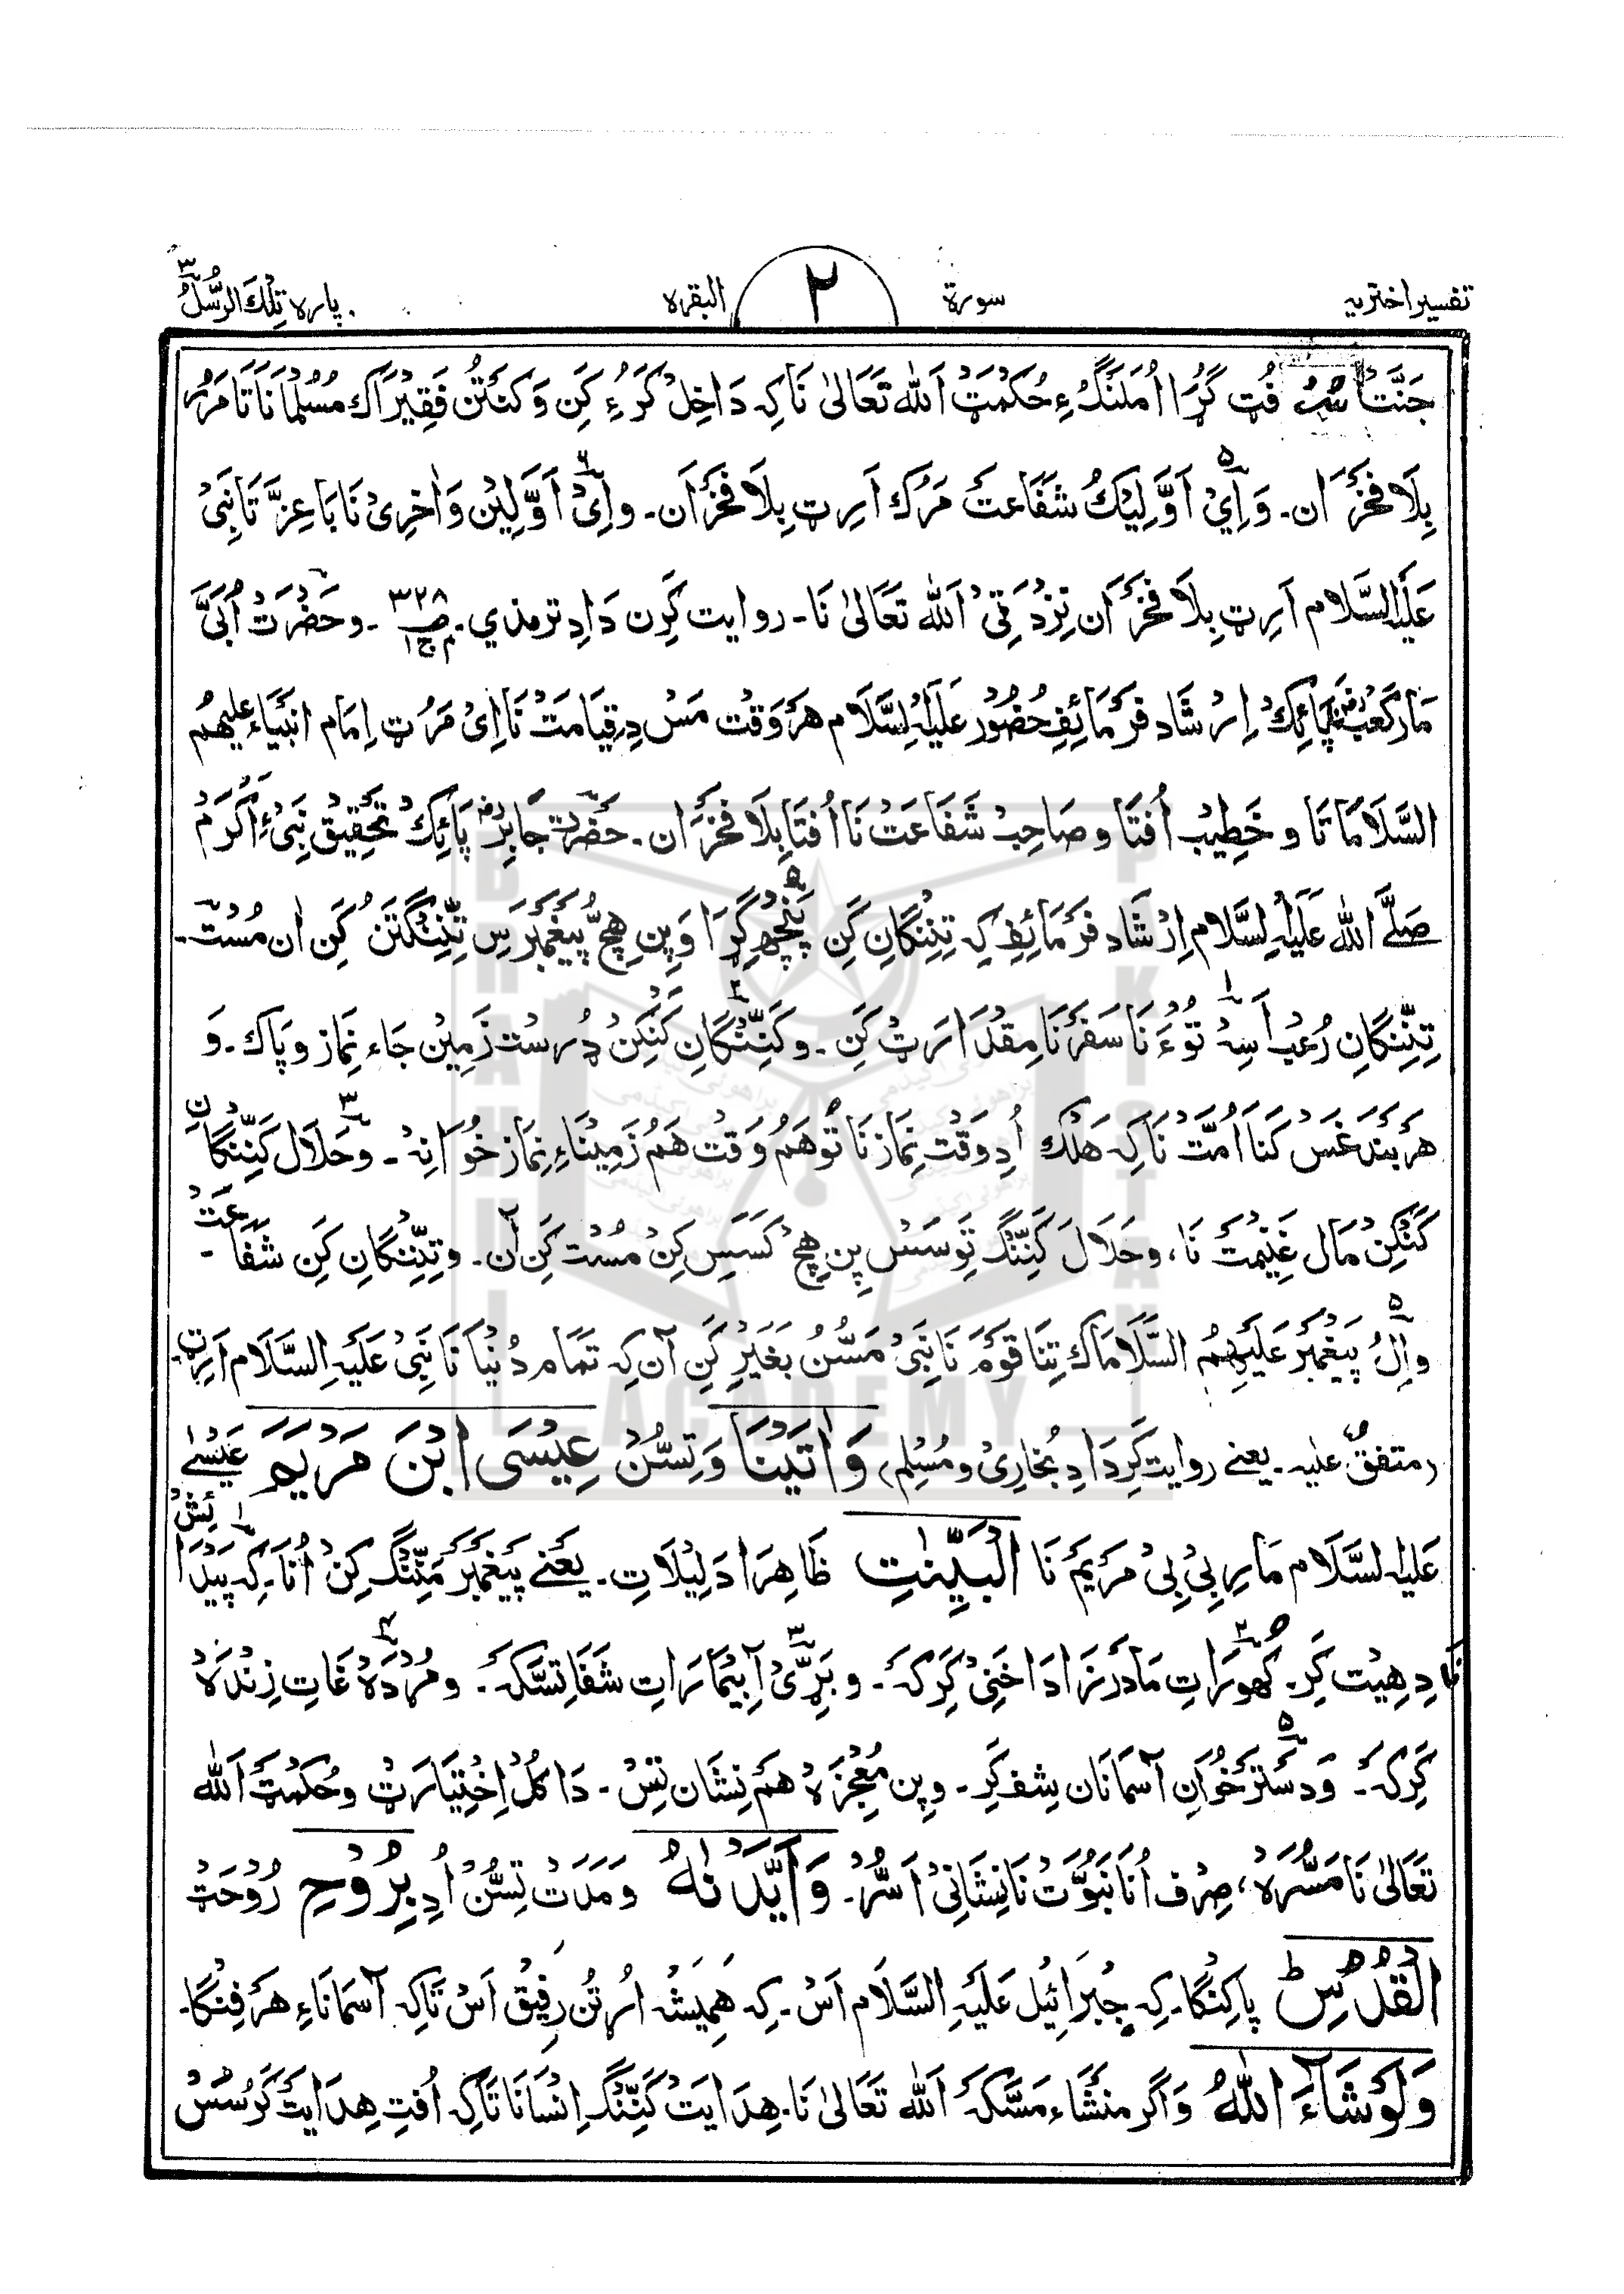 تفسیر اختریہ سورۃ ٢ البقرہ پارہ تِلْكَ الرُّسُلُ ٣
جَنَّتَا فُت گُڑا اُ مَلنَگُ ءِ حُکْمَتْ اَللّٰه تَعَالىٰ نَا کِہ دَاخِلْ کَرَ ءِ کَنِ وَ کَنَتُن فَقِیْرَاک مُسُلمَا نَا تَا مَرُر
بِلَا فَخْرَ اَن۔ وَ اِيْ اَوَّلِیْکُ شَفَاعَتْ مَرُک اَرِٹ بِلَا فَخْرَ اَن۔ و اِیْ اَوَّلِیْن وَ اٰخِرِیْ نَا بَا عِزَّ تَا نَبِیْ
عَلَیْہِ السَّلَام اَرِٹ بِلَا فَخْرَ اَن نِزْدِ قِیْ اَللّٰه تَعَالىٰ نَا۔ روایت کَرِن دَا دِ ترمذي۔ ص ٣٢٨ م ج ١ ۔ و حَضْرَتْ اُبَیَّ
مَارِ کَعْبْ پَائِکْ اِرْشَاد فَرمَائِفِ حُضُوْر عَلَیْہِ السَّلَام هَرْ وَقْت مَسْ دِ قِیَامَتْ نَا اِیْ مَرُٹ اِمَام انبیَاء عَلَیْهِمُ
السَّلَامَا تَا و خَطِیْب اُفتَا و صَاحِبْ شَفَاعَتْ نَا اُفتَا بِلَا فَخْرَ اَن۔ حَضْرَتْ جَابِرْ پَائِکْ تَحْقِیْق نَبِیْ ءِ اَکْرَمْ
صَلَّے اللّٰه عَلَیْہِ السَّلَام اِرْشَاد فَرمَائِفِ کِہ تِنِنگَانِ کَنِ پَنْچ ٥ گِرَا وَ پِن هِچّ پَیْغَمْبَرَسِ تِنِنگَتَن کَنِ اَن مُسْت۔
تِنِنگَانِ رُعْب اَسِہ تُوْءَ نَا سَفَرْ نَا مِقْدَا اَرِٹ کَنِ۔ و کَنِنگَانِ کَنکِنْ دُرُست زَمِیْن جَاءِ نِمَاز و پَاک۔ وَ
هَرْ بَنْدَغَسْ کَنَا اُمَّتْ نَا کِہ هَلْک اُ دِ وَقْت نِمَاز نَا تُو هَمُ وَقت هَمُ زَمِیْنَاءِ نِمَاز خُوَانِہ۔ ٣ و حَلَال کَنِنگَانِ
کَنکِنْ مَال غَنِیْمَتْ نَا، و حَلَال کَنِنگ تَوسَسْ پِن هِچْ کَسَسِ کِنْ مُسْت کَنِ اَن۔ و تِنِنگَانِ کَنِ شَفَاعَتْ۔
٥ و اِلُ پَیْغَمْبَر عَلَیْهِمُ السَّلَامَاک تِنَا قَومْ نَا نَبِیْ مَسُّنْ بَغَیْر کَنِ آن کِہ تَمَام دُنْیَا نَا نَبِیْ عَلَیْہِ السَّلَام اَرِٹ۔
(متفقٌ علیہ۔ یعنے روایت کَرِ دَا دِ بُخَارِیْ و مُسْلِم) وَاٰتَیْنَا وَ تِسُّنْ عِیْسَی ابْنَ مَرْیَمَ عَیْسٰے
عَلَیْہِ السَّلَام مَارِ بِیْ بِیْ مَرْیَمْ نَا الْبَیِّنٰتِ ظَاهِرَا دَلِیْلَاتِ۔ یَعْنے پَیْغَمْبَر مَنِنگ کِنْ اُنَا۔ کِہ پَیْدَا ئِشْ
نَا دِ هِیْت کَرِ۔ ٢ کُهوْرَاتِ مَادَرْزَادَا خَنِیْ کَرکَہ۔ ٣ و بَرَصِیْ آ بِیْمَارَاتِ شَفَا تِسَکَہ۔ ٤ و مُرْدَہ غَاتِ زِنْدَہ
کَرکَہ۔ ٥ وَ دَسْتَرخُوَانِ آسمَانَان شِف کَرِ۔ و پِن مُعْجِزَہ هَم نِشَان تِسْ۔ دَا کُلْ اِخْتِیَارَٹْ و حُکمَتْ اَللّٰه
تَعَالىٰ نَا مَسُرَہ، صِرْف اُنَا نَبُوَّتْ نَا نِشَانِیْ اَسُّرْ۔ وَاَیَّدْنٰهُ وَ مَدَتْ تِسُّنْ اُ دِ بِرُوْحِ رُوْحَتْ
الْقُدُسِ ط پاکِنگَا۔ کِہ جِبرَائِیْل عَلَیْہِ السَّلَام اَسْ۔ کِہ هَمِیْشَہ اُرتُن رَفِیْق اَسْ تَا کِہ آسمَانَاءِ هَرفِنگَا۔
وَلَوْ شَآءَ اللّٰهُ وَ اَگر مَنْشَاء مَسَّکَہ اَللّٰه تَعَالىٰ نَا۔ هِدَایَتْ کَنِنگ اِنْسَانَا تَا کِہ اُفتِ هِدَایَتْ کَرُسُسْ